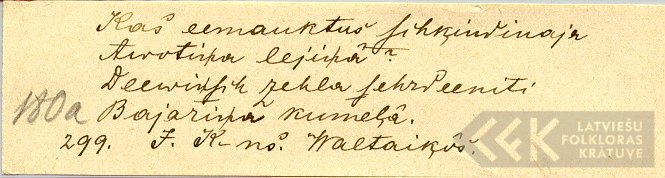 Kas eemauktus sihķindinaja
Awotiņa lejiņâ?
Deewiņsch zehla sehrdeeniti
Bajariņa kumeļâ.
180a
299. J. K-ns. Waltaiķôs.
LATVIEŠU
FOLKLORAS
KRĀTUVE